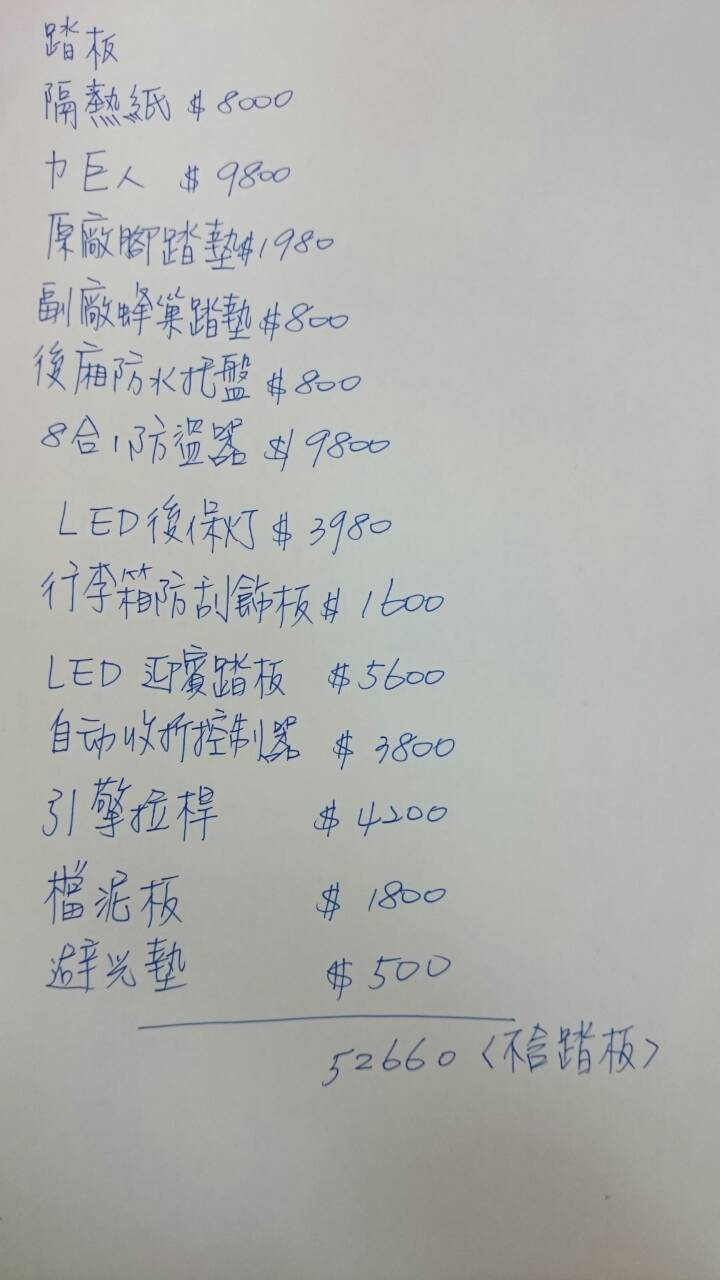 踏板
隔熱紙 $8000
力巨人 $9800
原廠腳踏墊$1980
副廠蜂巢踏墊$800
後廂防水托盤$800
8合1防盜器 $9800
LED後保灯$3980
行李箱防刮飾板$1600
LED 迎賓踏板 $5600
自动收折控制器 $3800
引擎拉桿 $4200
檔泥板 $1800
避光墊 $500
52660〈不含踏板〉